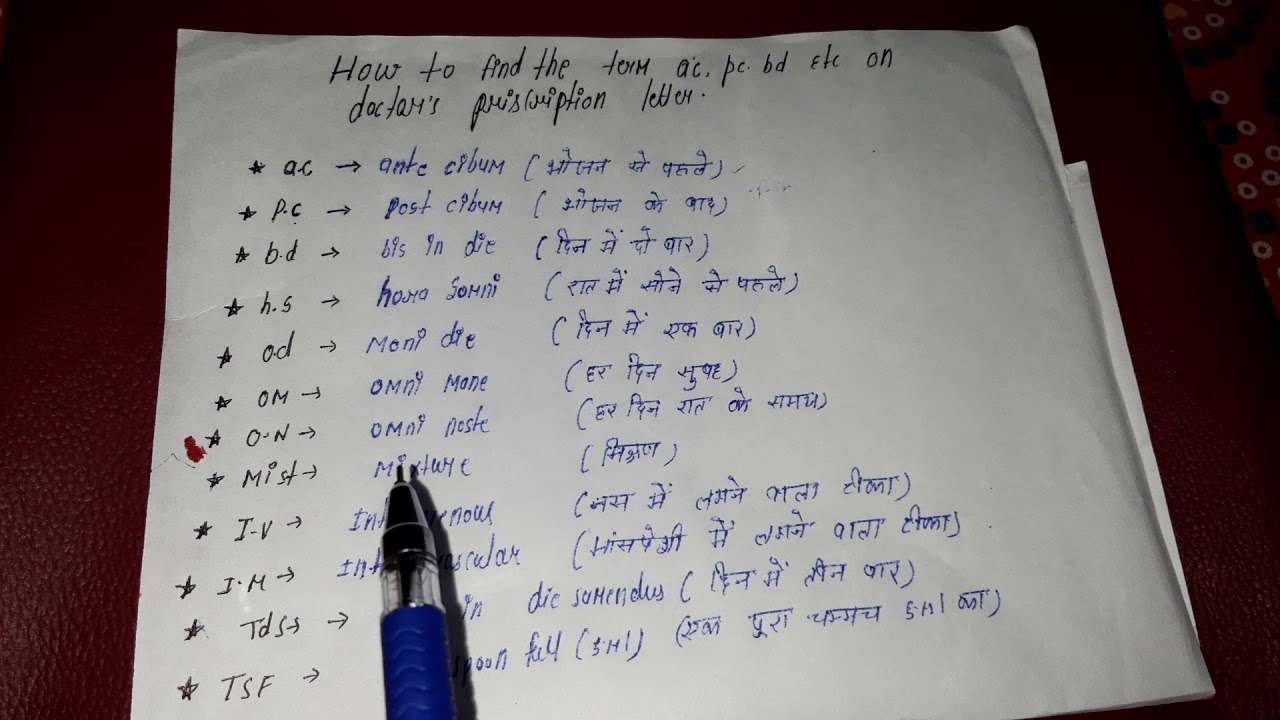 How to find the term a.c, p.c. b.d etc on
doctor's priscription letter.
★ a.c → ante cibum (भोजन से पहले)
★ P.C → Post cibum (भोजन के बाद)
★ b.d → bis in die (दिन में दो बार)
★ h.s → hora somni (रात में सोने से पहले)
★ o.d → Moni die (दिन में एक बार)
★ OM → OMNi Mane (हर दिन सुबह)
★ O.N → OMNi noste (हर दिन रात के समय)
★ Mist → Mixture (मिश्रण)
★ I-V → Int venous (नस में लगने वाला टीका)
★ I.M → Int scular (मांसपेशी में लगने वाला टीका)
★ Tds → in die sumendus (दिन में तीन बार)
★ TSF → spoon full (5Ml) (एक पूरा चम्मच 5Ml का)